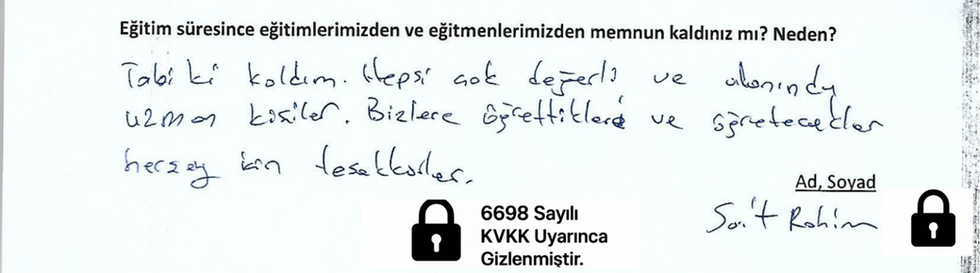 Eğitim süresince eğitimlerimizden ve eğitmenlerimizden memnun kaldınız mı? Neden?
Tabi ki kaldım. Hepsi çok değerli ve alanında
uzman kişiler. Bizlere öğrettikleri ve öğretecekler
herşey için teşekkürler.
Ad, Soyad
Sait Rahim
6698 Sayılı
KVKK Uyarınca
Gizlenmiştir.